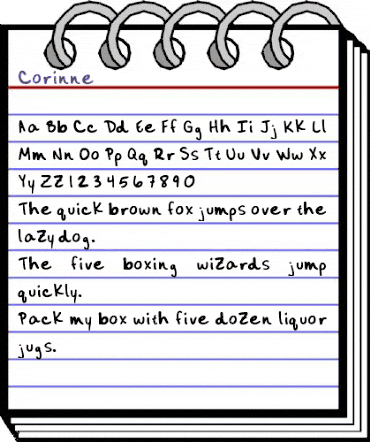 Corinne
Aa Bb Cc Dd Ee Ff Gg Hh Ii Jj KK Ll
Mm Nn Oo Pp Qq Rr Ss Tt Uu Vv Ww Xx
Yy ZZ 1 2 3 4 5 6 7 8 9 0
The quicK brown fox jumps over the
laZy dog.
The five boxing wiZards jump
quicKly.
PacK my box with five doZen liquor
jugs.